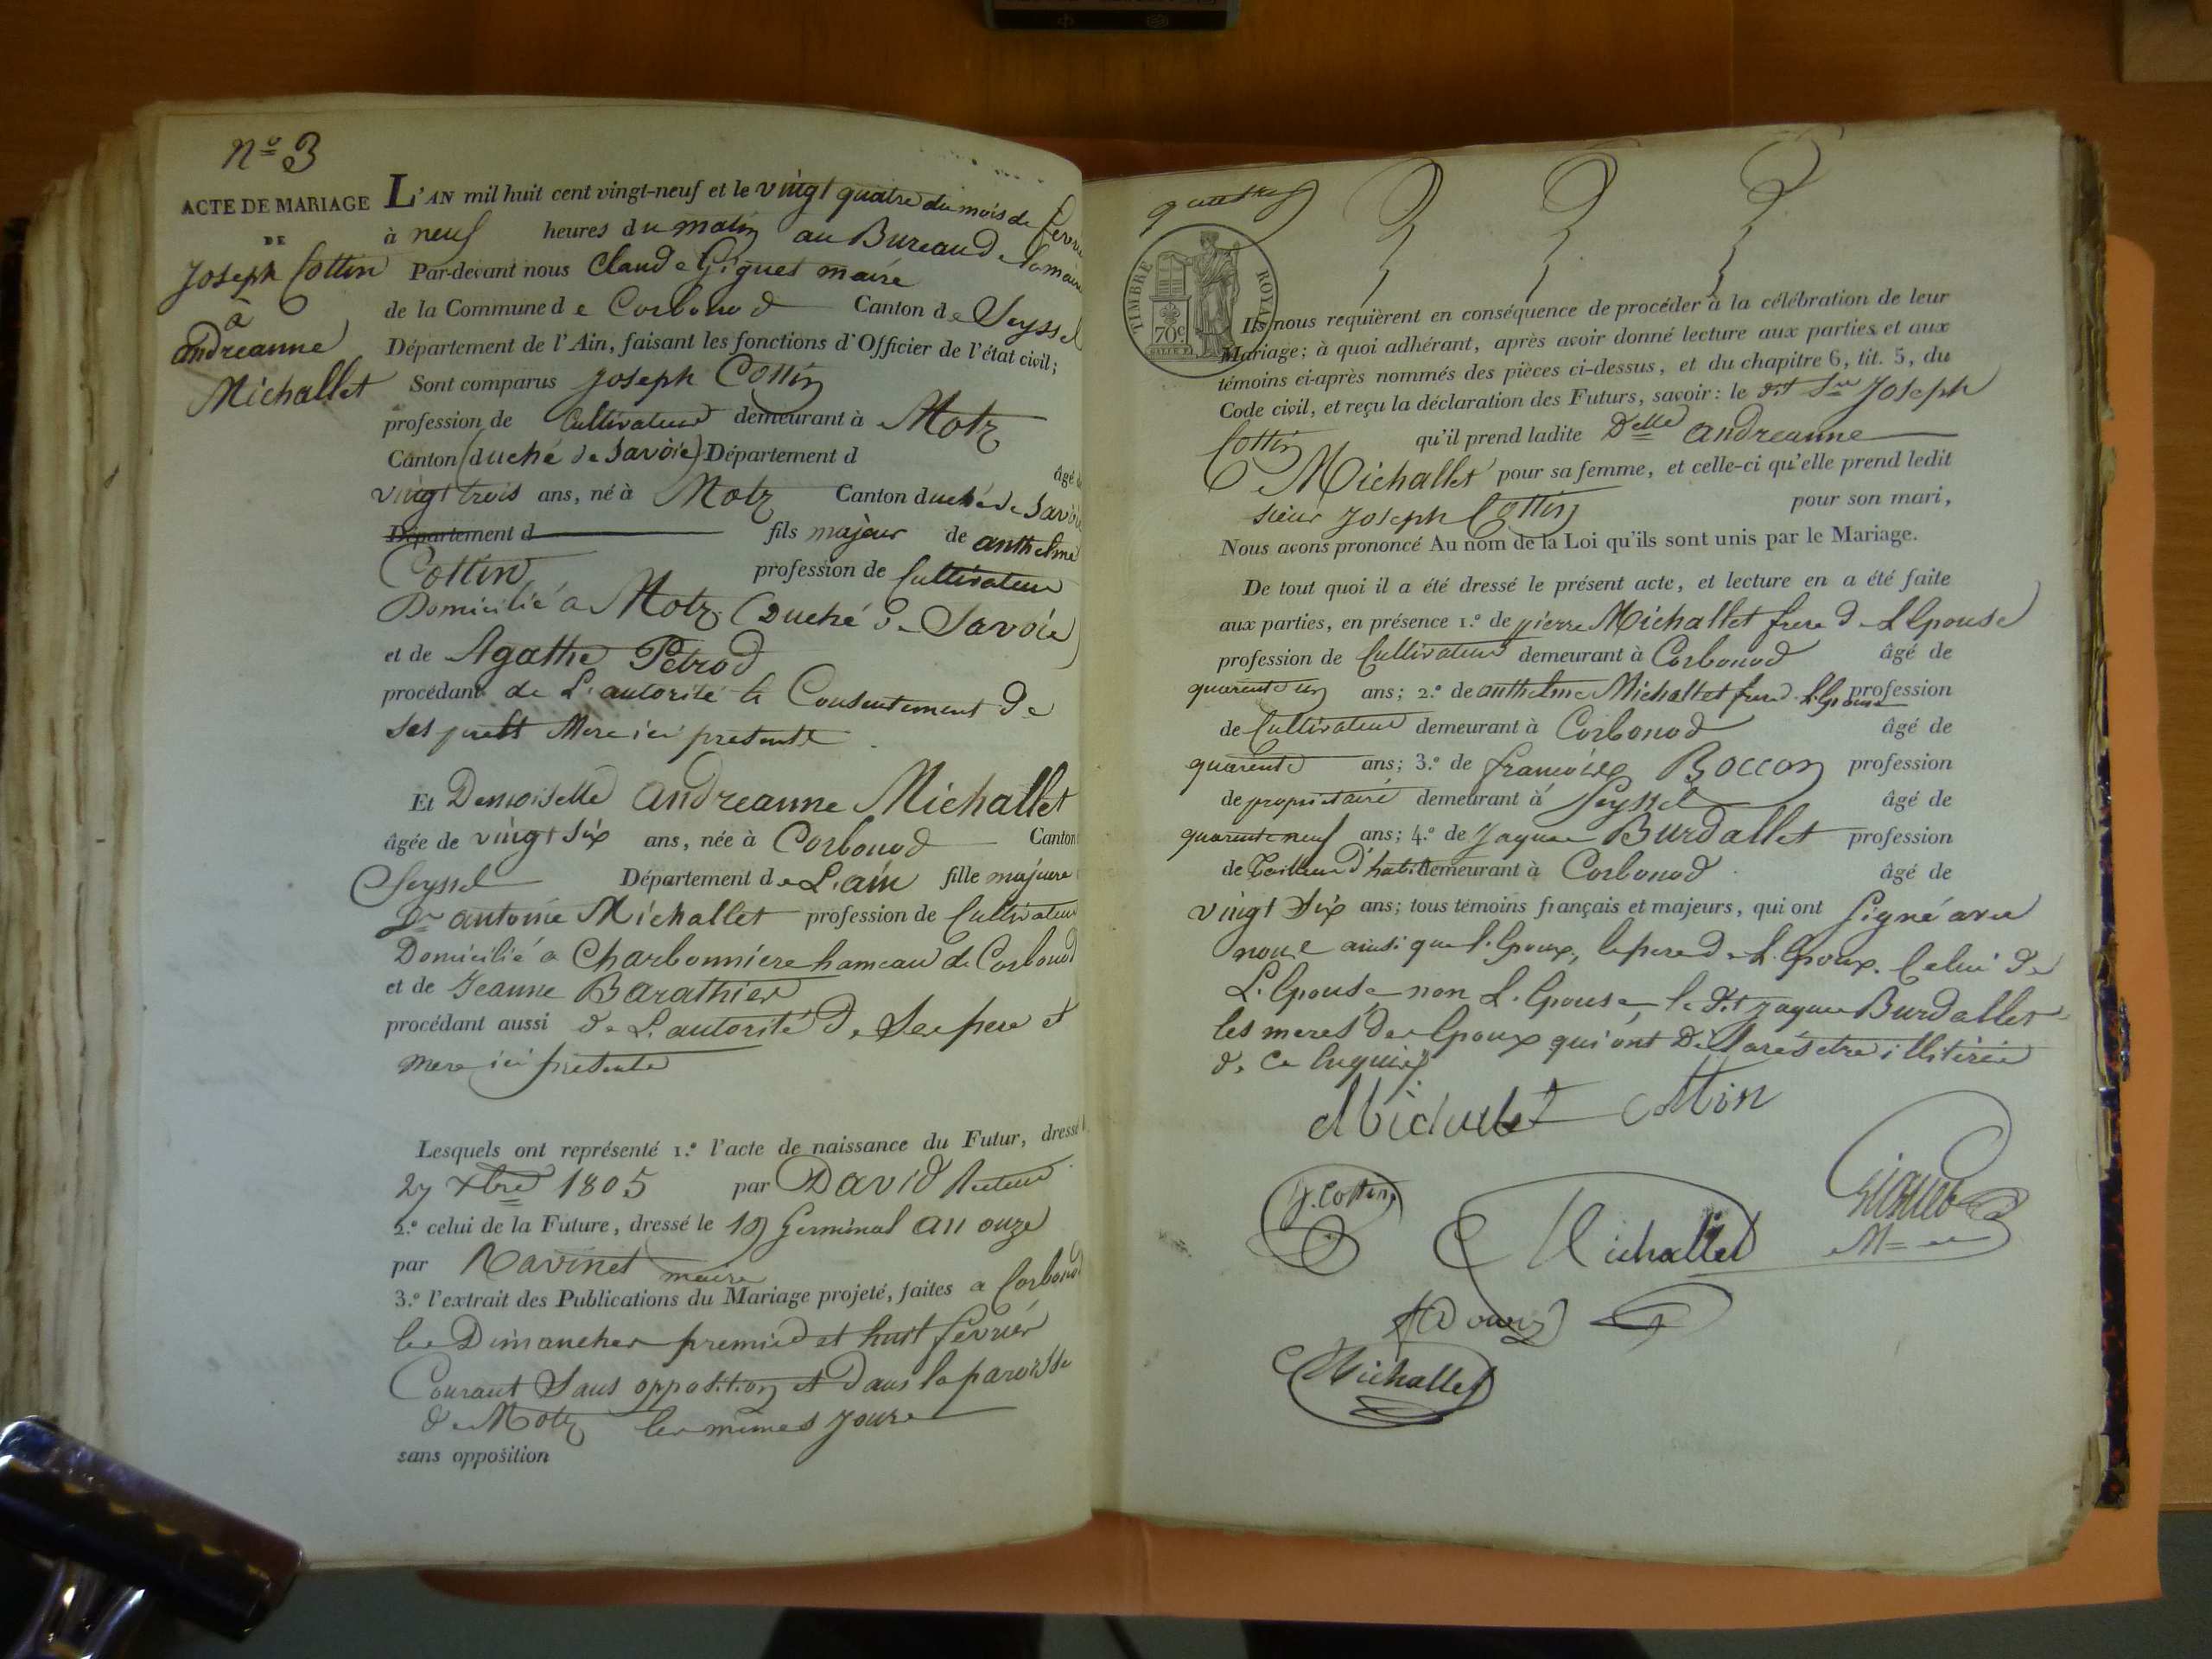 nº 3
ACTE DE MARIAGE
DE
Joseph Cottin
a
andreanne
Michallet
L'AN mil huit cent vingt-neuf et le vingt quatre du mois de
à neuf heures du matin au Bureau de la mairie
Par-devant nous Claude Giguet maire
de la Commune de Corbonod Canton de Seyssel
Département de l'Ain, faisant les fonctions d'Officier de l'état civil;
Sont comparus Joseph Cottin
profession de Cultivateur demeurant à Motz
Canton (duché de Savoie) Département d
âgé de
vingt trois ans, né à Motz Canton duché de Savoie
Département d fils majeur de anthelme
Cottin profession de Cultivateur
Domicilié a Motz (Duché de Savoie)
et de Agathe Petrod
procédant de L'autorité & Consentement de
ses pere & Mere ici presents
Et Demoiselle andreanne Michallet
âgée de vingt six ans, née à Corbonod Canton
Seyssel Département de L'ain fille majeure
Dr antoine Michallet profession de Cultivateur
Domicilié a Charbonniere hameau de Corbonod
et de Jeanne Barathier
procédant aussi de L'autorité de Ses pere et
mere ici presents
Lesquels ont représenté 1.º l'acte de naissance du Futur, dressé
27 Xbre 1805 par David Recteur
2.º celui de la Future, dressé le 19 Germinal an onze
par Ravinet maire
3.º l'extrait des Publications du Mariage projeté, faites a Corbonod
les Dimanches premier et huit fevrier
Courant Sans opposition et Dans la paroisse
de Motz les mêmes jours
sans opposition
TIMBRE ROYAL
70c
Ils nous requièrent en conséquence de procéder à la célébration de leur
Mariage; à quoi adhérant, après avoir donné lecture aux parties et aux
témoins ci-après nommés des pièces ci-dessus, et du chapitre 6, tit. 5, du
Code civil, et reçu la déclaration des Futurs, savoir: le dit Sr Joseph
Cottin qu'il prend ladite Delle andreanne
Michallet pour sa femme, et celle-ci qu'elle prend ledit
sieur Joseph Cottin pour son mari,
Nous avons prononcé Au nom de la Loi qu'ils sont unis par le Mariage.
De tout quoi il a été dressé le présent acte, et lecture en a été faite
aux parties, en présence 1.º de pierre Michallet frere de L'Epouse
profession de Cultivateur demeurant à Corbonod âgé de
quarente un ans; 2.º de anthelme Michallet frere de L'Epouse profession
de Cultivateur demeurant à Corbonod âgé de
quarente ans; 3.º de françois Boccon profession
de proprietaire demeurant à Seyssel âgé de
quarente neuf ans; 4.º de Jaques Burdallet profession
de Tailleur d'habit demeurant à Corbonod âgé de
vingt six ans; tous témoins français et majeurs, qui ont Signé avec
nous ainsi que l'Epoux, le pere de L'Epoux. Celui de
L'Epouse non L'Epouse, le dit jaques Burdallet
les meres des Epoux qui ont Declarés etre illitérés
de ce Enquis
Michallet Cottin
J. Cottin
Giguet
Mre
Michallet
Michallet